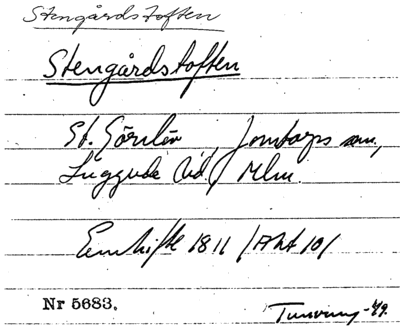 Stengårdstoften
Stengårdstoften
St. Görslöv, Jonstorps sn,
Luggude hd. Mlm.
Enskifte 1811 /Akt 10/
Nr 5683.
-49.